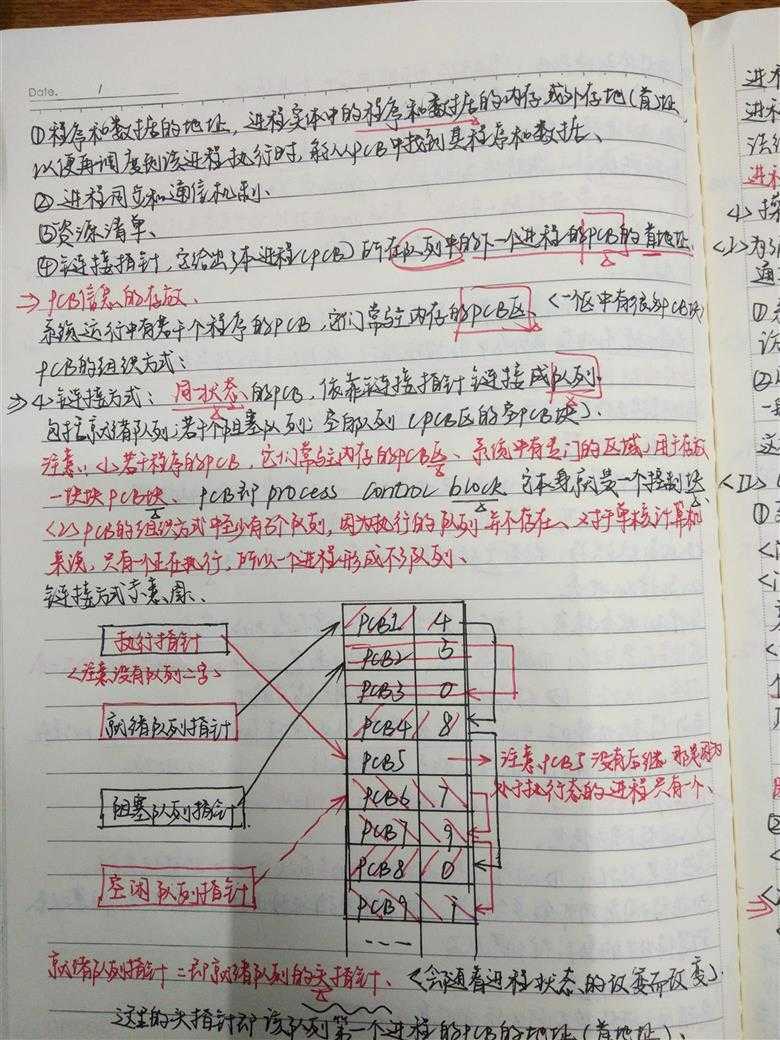 Date. 1
①程序和数据的地址,进程实体中的程序和数据的内存或外存地(首)址,
以便再调度到该进程执行时,能从PCB中找到其程序和数据、
②进程同立和通信机制、
③资源清单、
④链连接指针,它给出了本进程(PCB)所在队列中的下一个进程的PCB的首地址、
⇒PCB信息的存放、
系统运行中有若干个程序的PCB,它们常驻内存的PCB区、<一个区中有很多PCB块>
PCB的组织方式:
⇒<1>链连接方式:同状态的PCB,依靠链连接指针链接成队列、
包括就绪队列;若干个阻塞队列;空闲队列(PCB区的空PCB块)、
注意:<1>若干程序的PCB,它们常驻内存的PCB区、系统中有专门的区域,用于存放
一块块PCB块、PCB即process control block、它本身就是一个控制块、
<2>PCB的组织方式中至少有3个队列,因为执行的队列并不存在、对于单核计算机
来说,只有一个正在执行,所以一个进程形成不了队列、
链连接方式示意图、
执行指针
<注意没有队列二字>
就绪队列指针
阻塞队列指针
空闲队列指针
PCB1 4
PCB2 3
PCB3 0
PCB4 8
PCB5
PCB6 7
PCB7 9
PCB8 0
PCB9 1
---
注意、PCB5没有后继、那是因为
处于执行态的进程只有一个、
就绪队列指针=即就绪队列的头指针、<会随着进程状态的改变而改变>
这里的头指针即该队列第一个进程的PCB的地址(首地址)、
进程
进程
法
进程
<1>操
<2>为
通
①
②